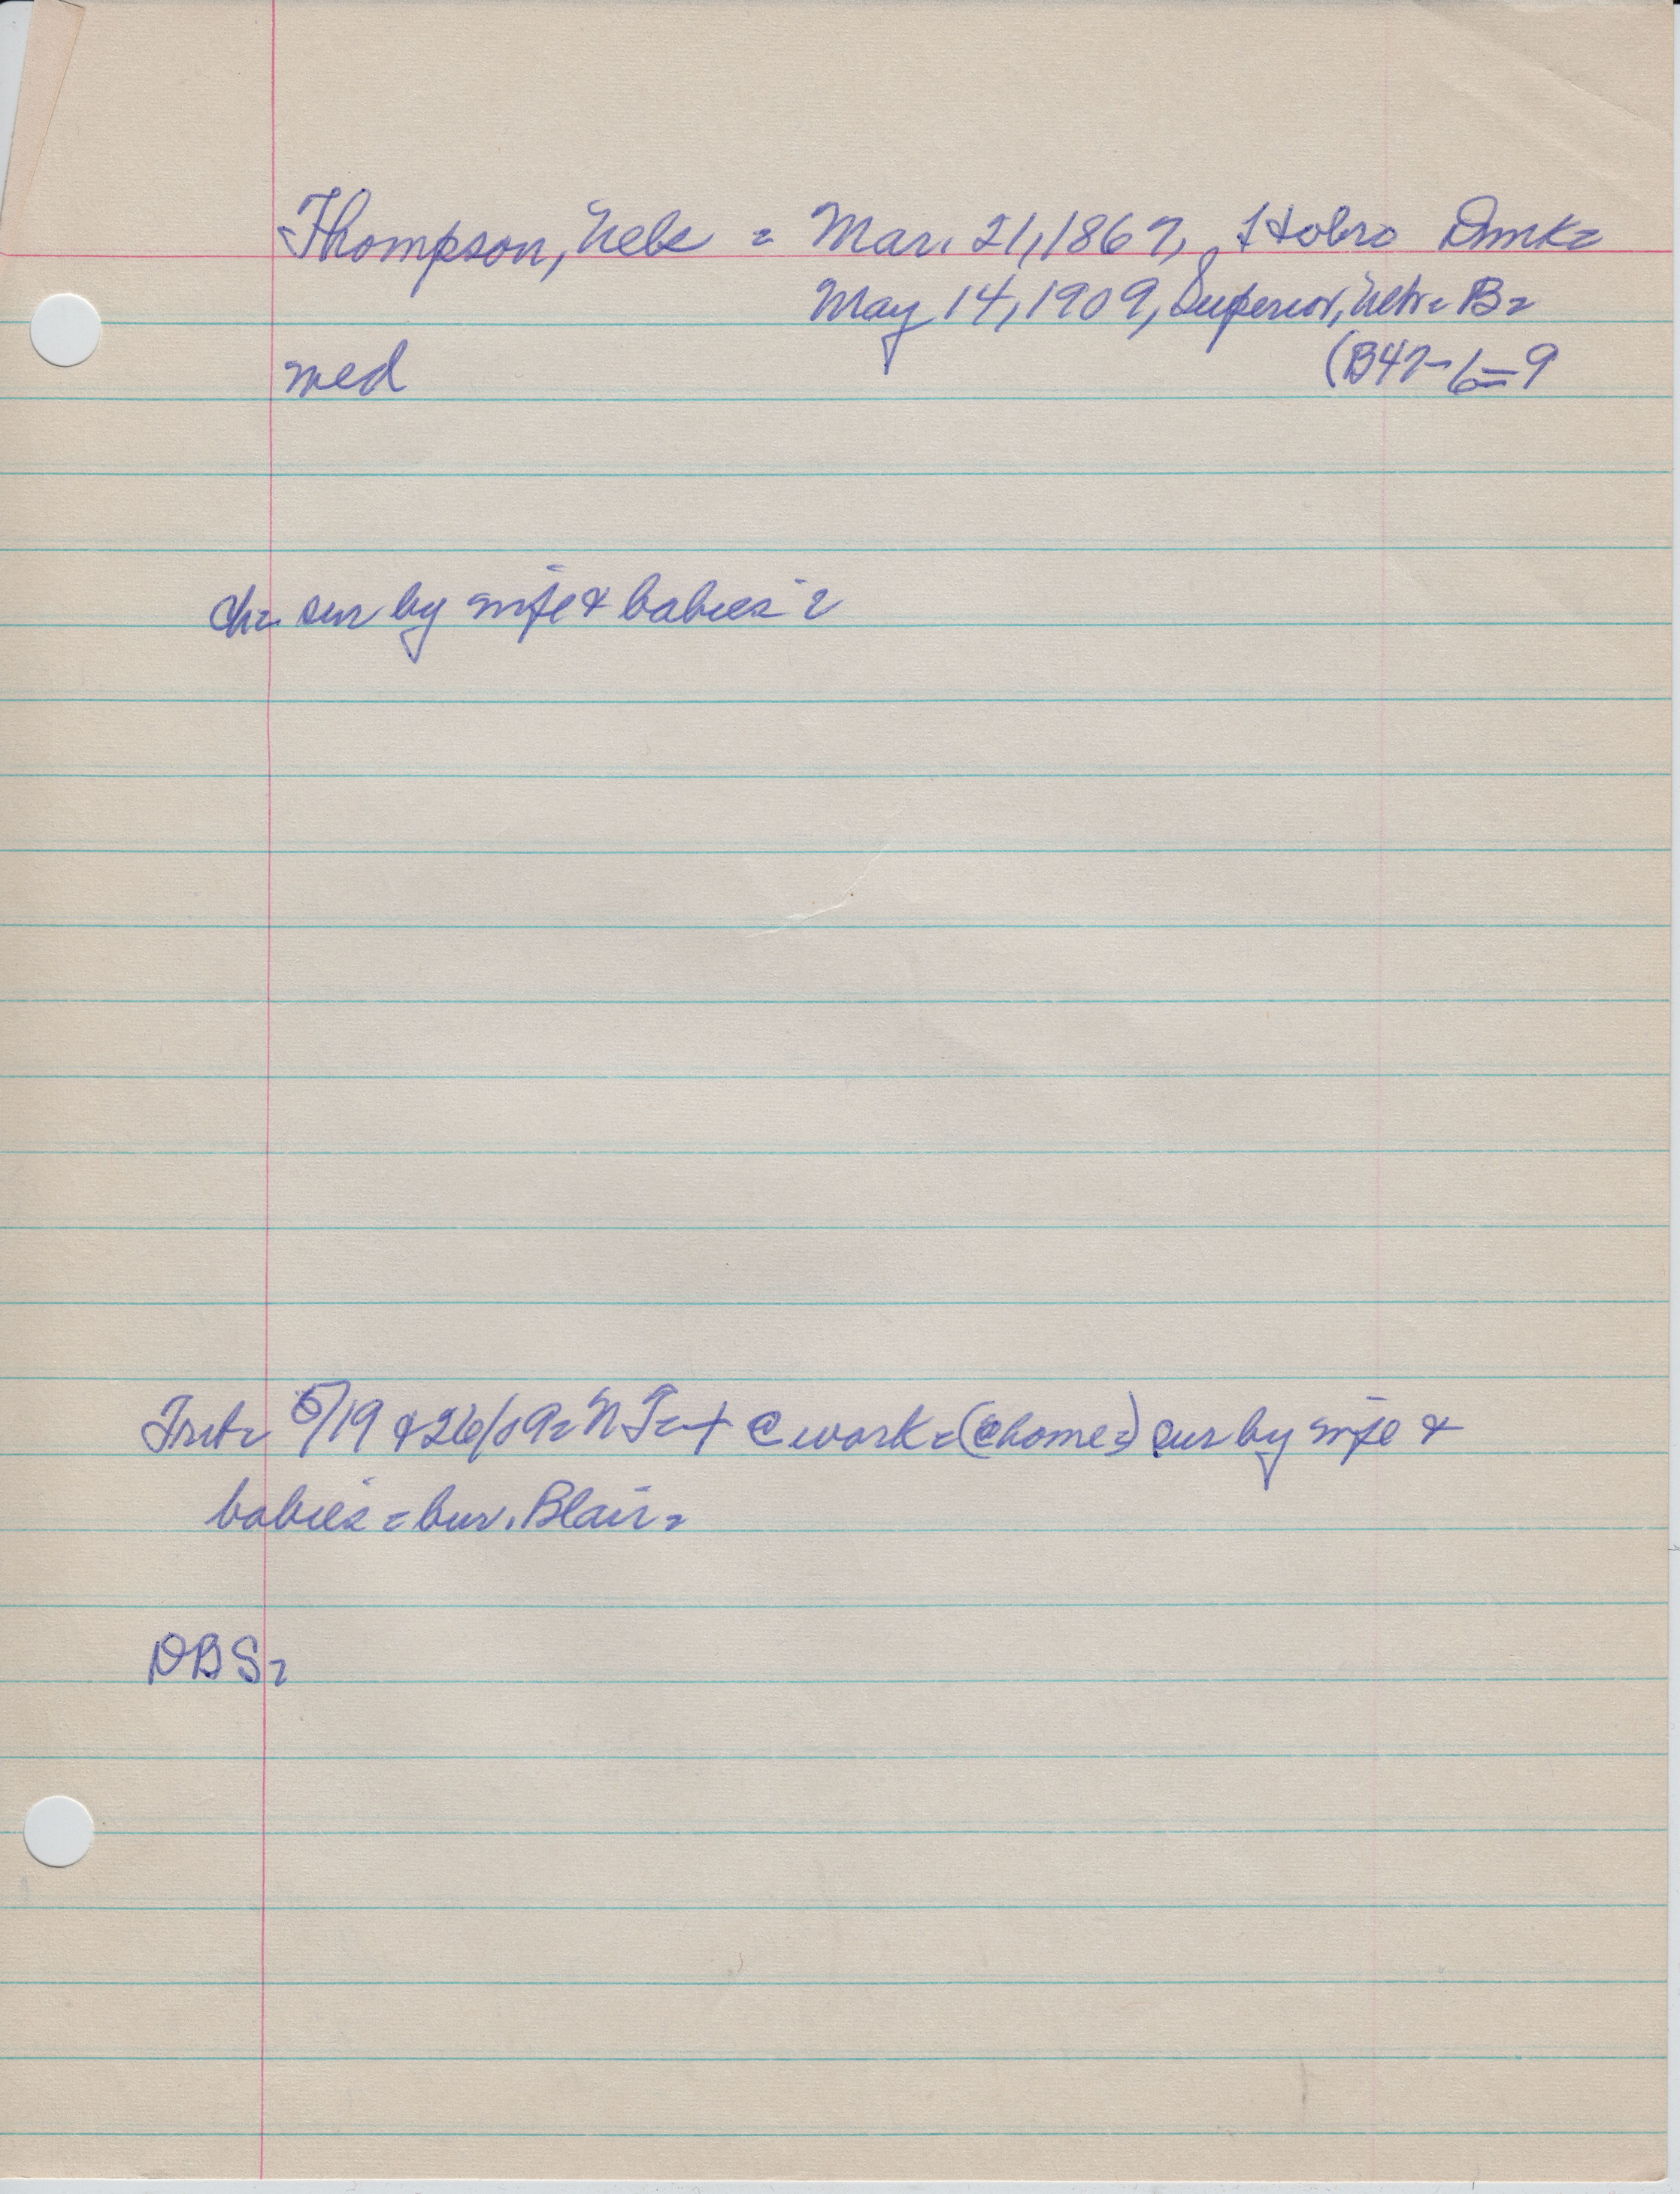 Thompson, Nels = Mar. 21, 1867, Hobro Dnmk=
May 14, 1909, Superior, Nebr= B=
med (B47-6=9
ch= sur by wife & "babies"=
5/19 & 26/09= NT= + @ work= (@ home=) sur by wife &
"babies"= bur. Blair=
DBS=